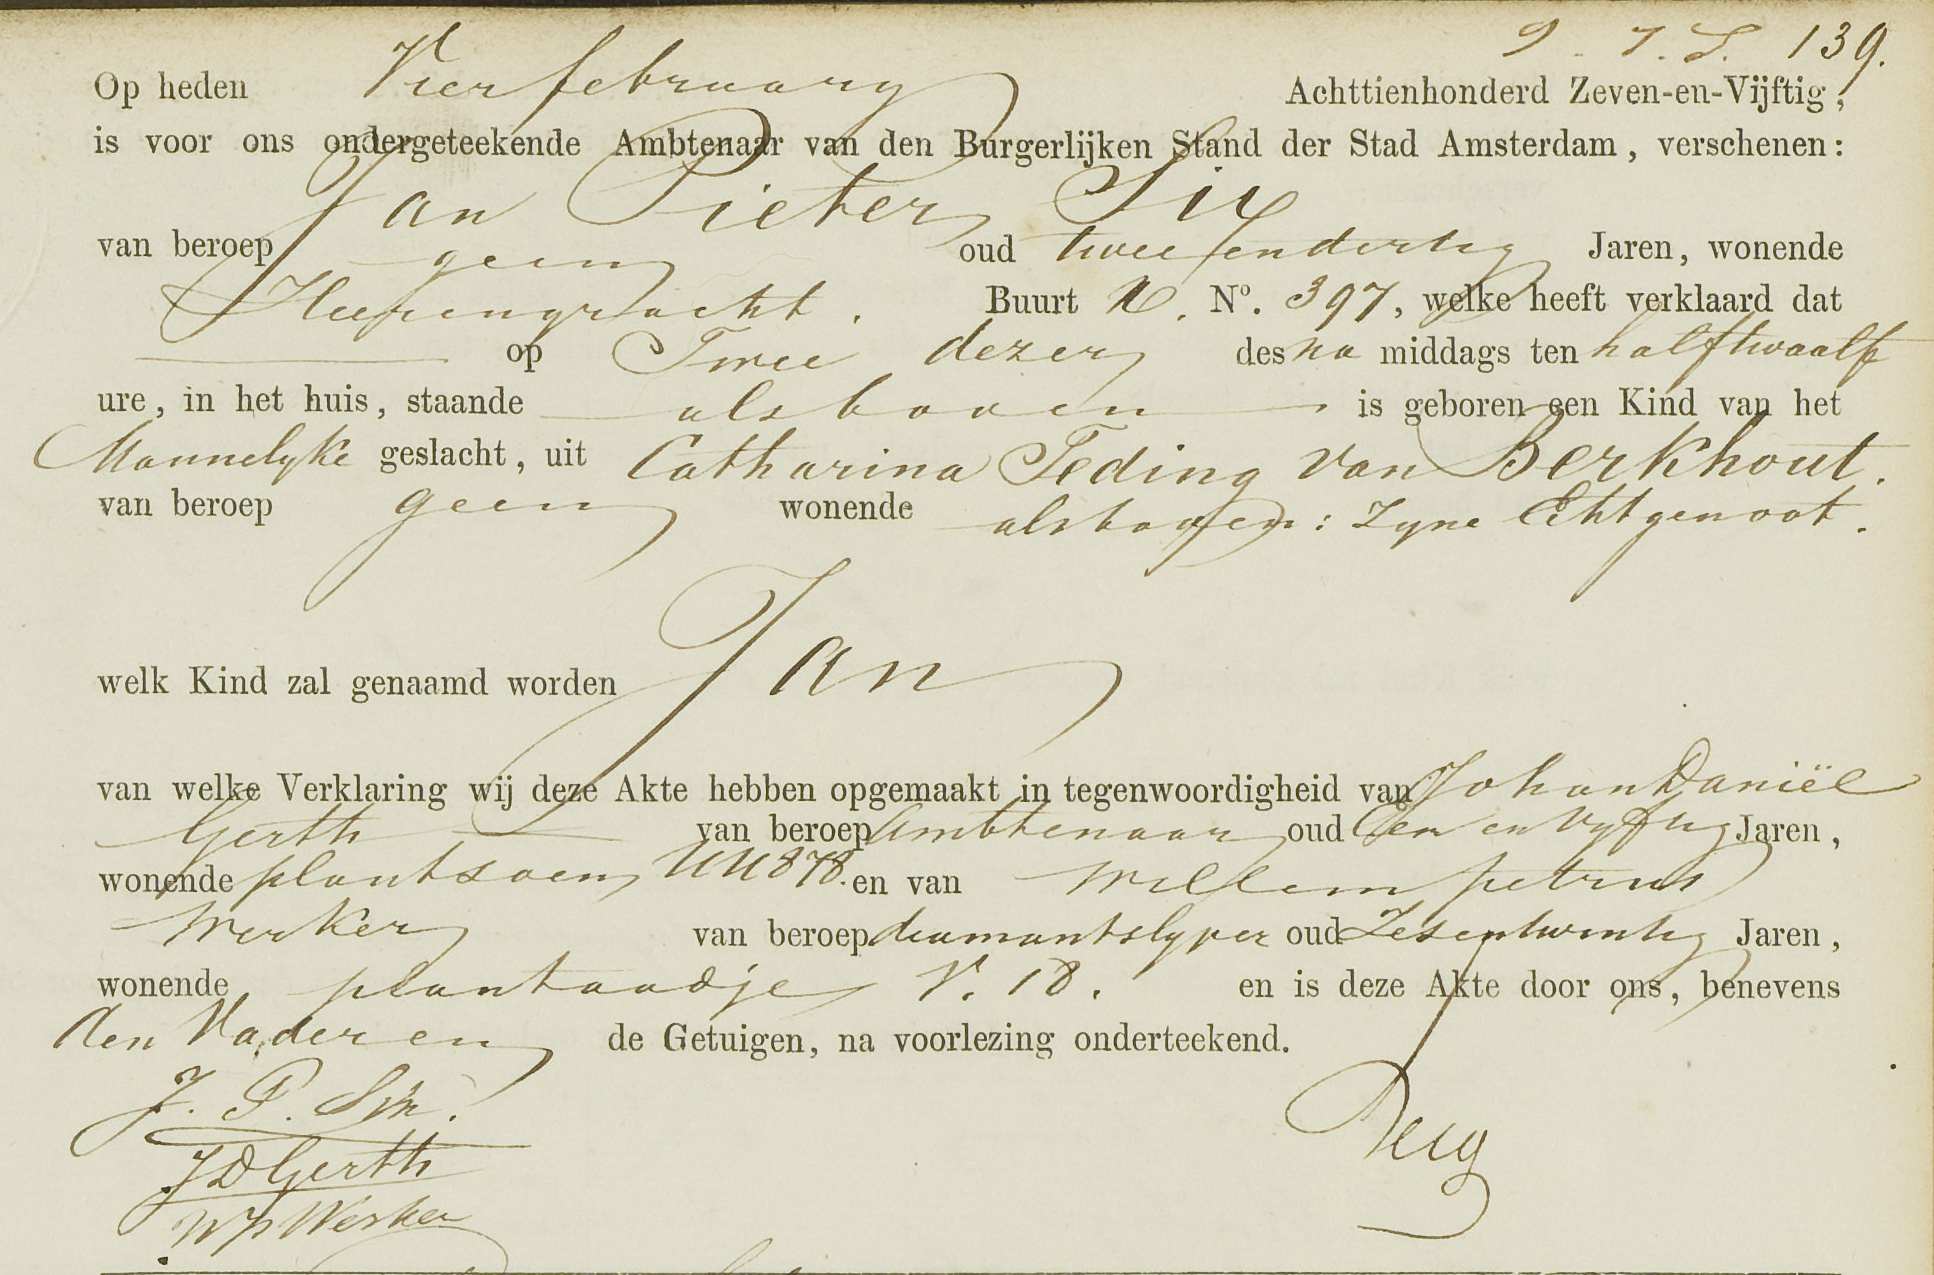 9 . 7 . S. 139.
Op heden Vier february Achttienhonderd Zeven-en-Vijftig,
is voor ons ondergeteekende Ambtenaar van den Burgerlijken Stand der Stad Amsterdam, verschenen:
Jan Pieter Six
van beroep geen oud twee en dertig Jaren, wonende
Heerengracht. Buurt No. 397, welke heeft verklaard dat
op Twee dezer des na middags ten halftwaalf
ure, in het huis, staande alsboven is geboren een Kind van het
Mannelyke geslacht, uit Catharina Teding van Berkhout.
van beroep geen wonende alsboven: Zyne Echtgenoot.
welk Kind zal genaamd worden Jan
van welke Verklaring wij deze Akte hebben opgemaakt in tegenwoordigheid van Johan Daniël
Gerth van beroep Ambtenaar oud Een en vyftig Jaren,
wonende plantsoen UU878. en van Willem petrus
Werker van beroep diamantslyper oud Zesentwintig Jaren,
wonende plantaadje V. 18. en is deze Akte door ons, benevens
den Vader en de Getuigen, na voorlezing onderteekend.
J. P. Six.
JD Gerth
WP Werker